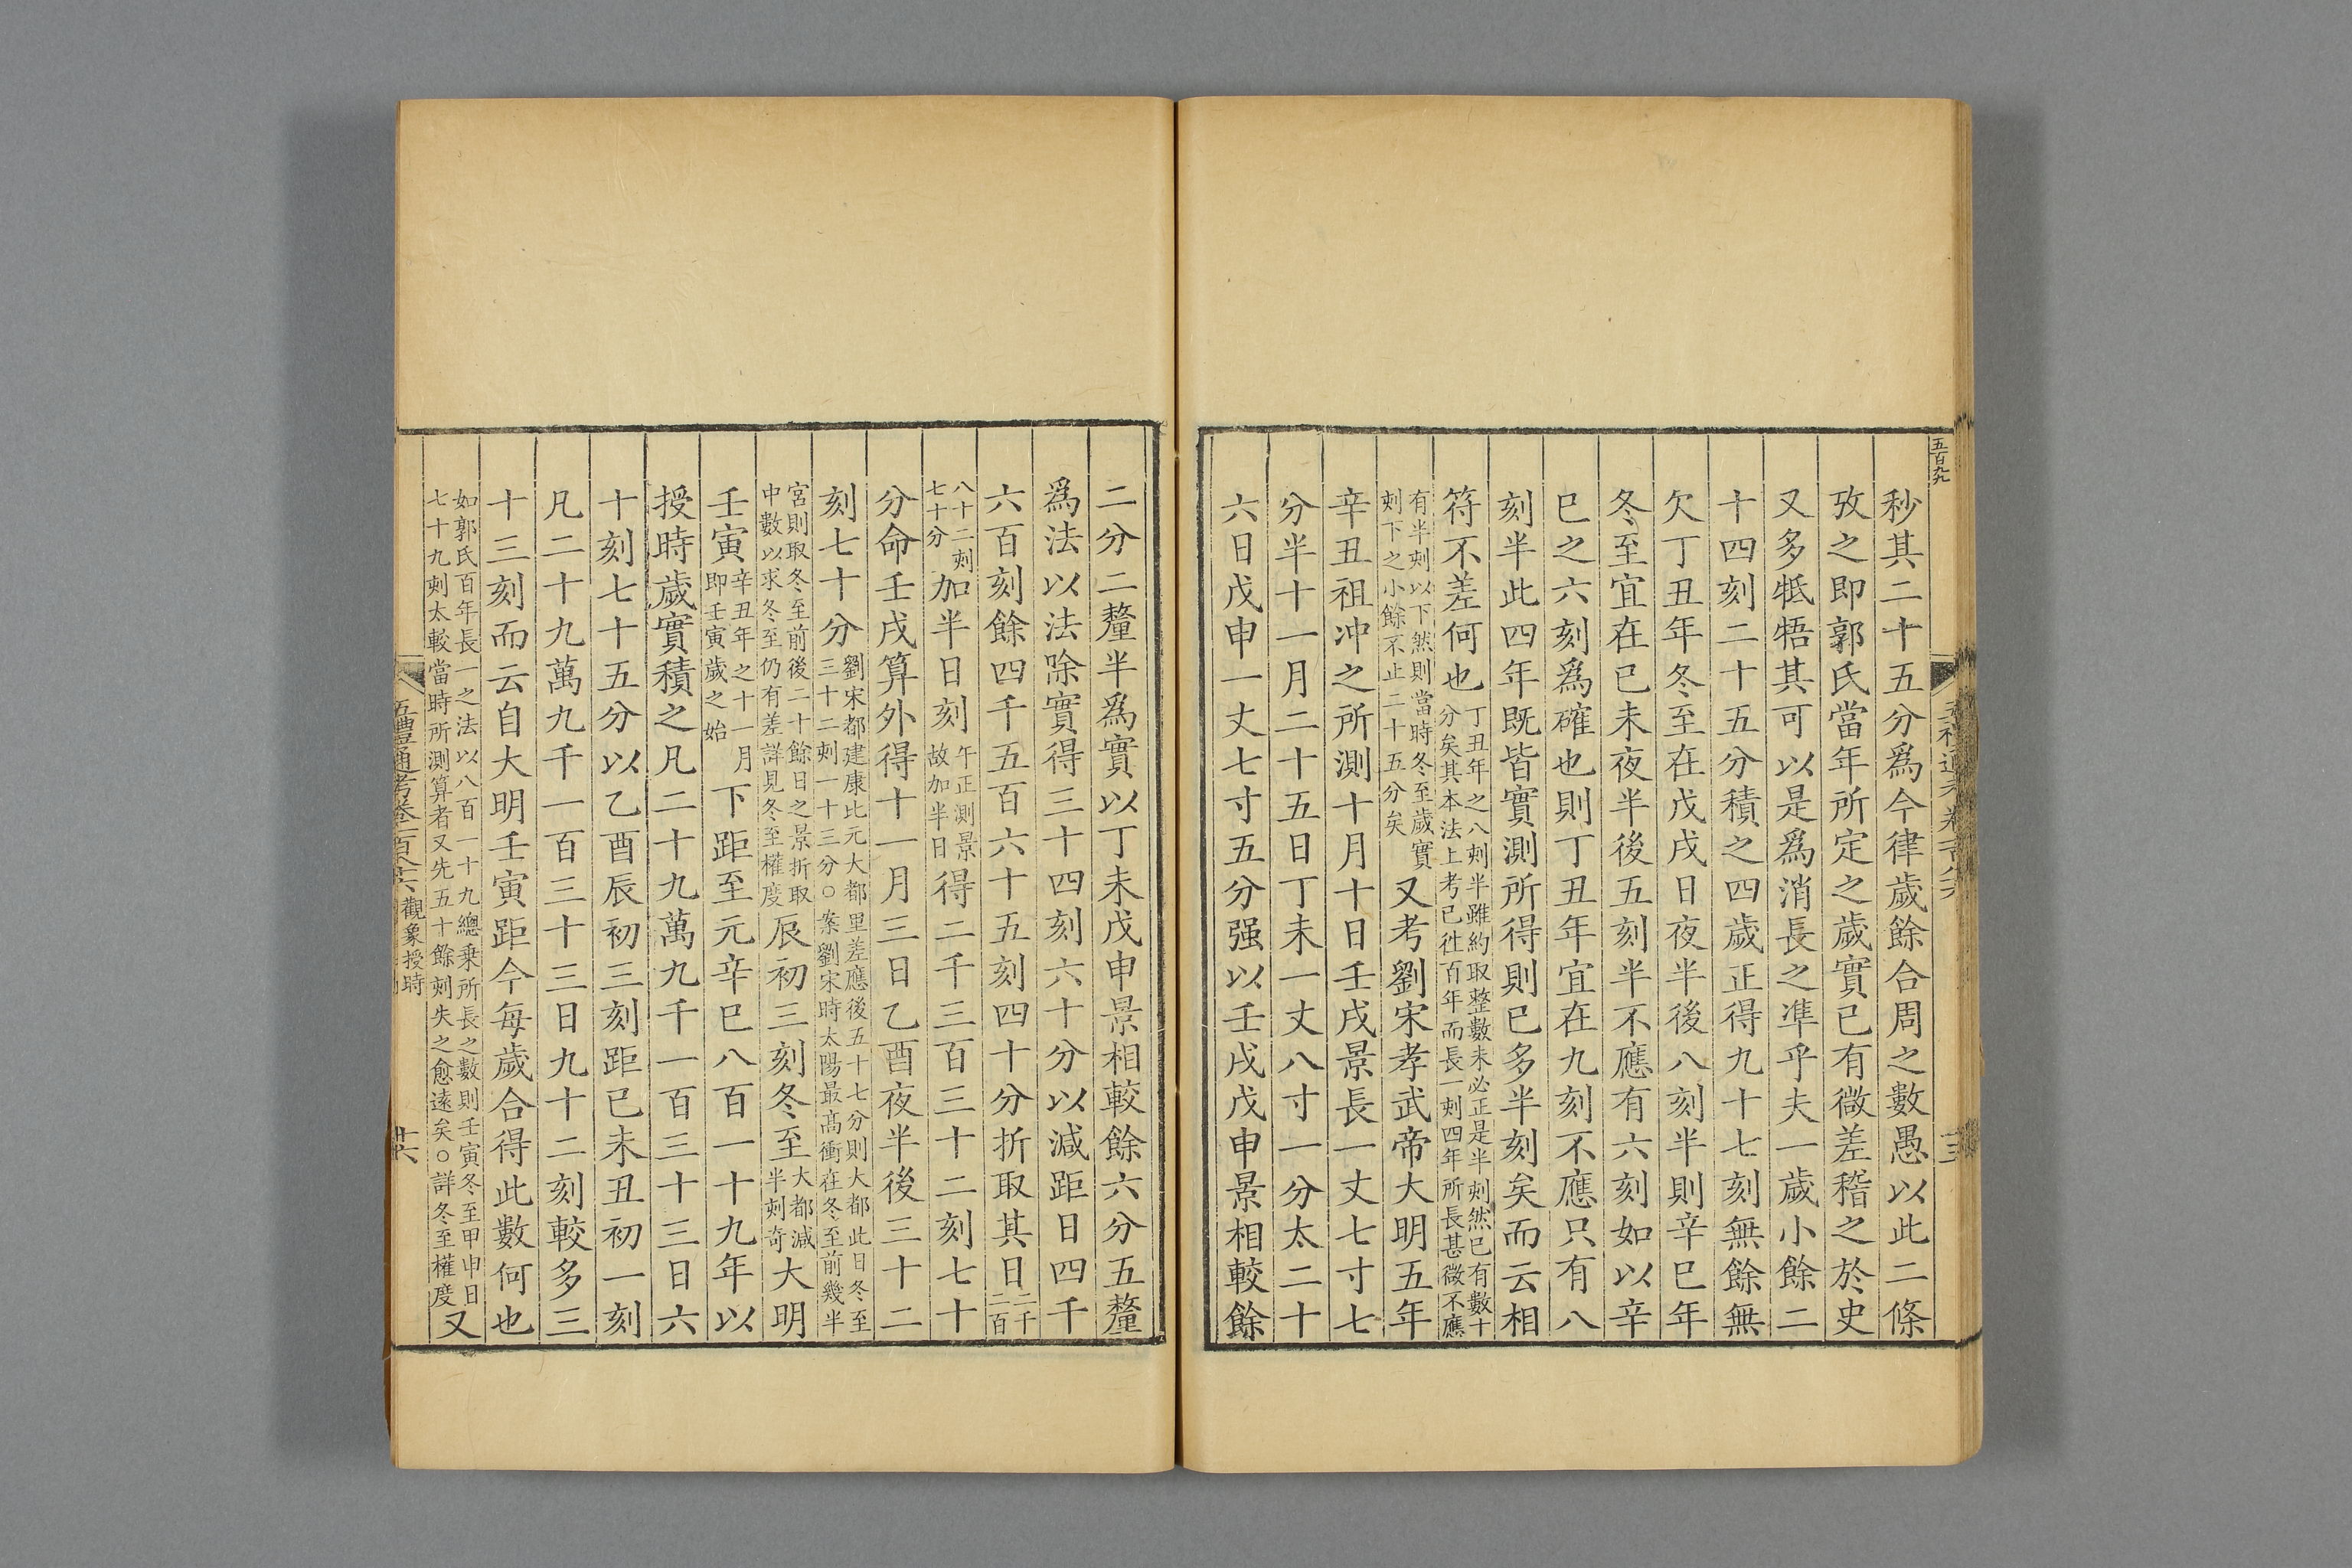 五百九
秒其二十五分爲今律歲餘合周之數愚以此二條
攷之即郭氏當年所定之歲實已有微差稽之於史
又多牴牾其可以是爲消長之準乎夫一歲小餘二
十四刻二十五分積之四歲正得九十七刻無餘無
欠丁丑年冬至在戊戌日夜半後八刻半則辛巳年
冬至宜在己未夜半後五刻半不應有六刻如以辛
巳之六刻爲確也則丁丑年宜在九刻不應只有八
刻半此四年既皆實測所得則已多半刻矣而云相
符不差何也丁丑年之八刻半雖約取整數未必正是半刻然已有數十
分矣其本法上考已往百年而長一刻四年所長甚微不應
有半刻以下然則當時冬至歲實
刻下之小餘不止二十五分矣又考劉宋孝武帝大明五年
辛丑祖冲之所測十月十日壬戌景長一丈七寸七
分半十一月二十五日丁未一丈八寸一分太二十
六日戊申一丈七寸五分强以壬戌戊申景相較餘
二分二釐半爲實以丁未戊申景相較餘六分五釐
爲法以法除實得三十四刻六十分以減距日四千
六百刻餘四千五百六十五刻四十分折取其日二千
二百
八十二刻
七十分加半日刻午正測景
故加半日得二千三百三十二刻七十
分命壬戌算外得十一月三日乙酉夜半後三十二
刻七十分劉宋都建康比元大都里差應後五十七分則大都此日冬至
三十二刻一十三分○案劉宋時太陽最高衝在冬至前幾半
宮則取冬至前後二十餘日之景折取
中數以求冬至仍有差詳見冬至權度辰初三刻冬至大都減
半刻奇大明
壬寅辛丑年之十一月
即壬寅歲之始下距至元辛巳八百一十九年以
授時歲實積之凡二十九萬九千一百三十三日六
十刻七十五分以乙酉辰初三刻距己未丑初一刻
凡二十九萬九千一百三十三日九十二刻較多三
十三刻而云自大明壬寅距今每歲合得此數何也
如郭氏百年長一之法以八百一十九總乗所長之數則壬寅冬至甲申日
七十九刻太較當時所測算者又先五十餘刻失之愈遠矣○詳冬至權度又
五禮通考卷一百八十六 觀象授時